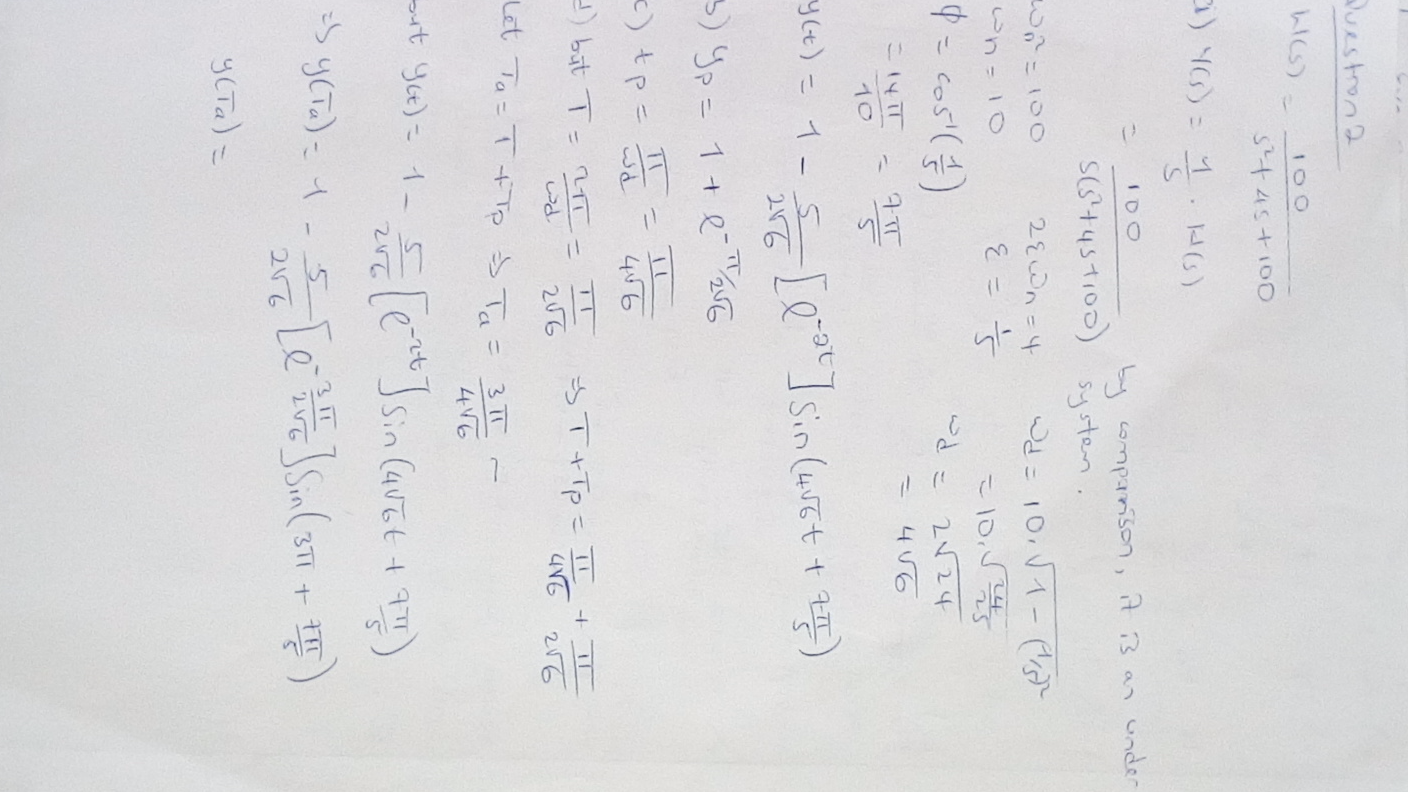 Question 2
H(s) = 100 / s²+4s+100
a) Y(s) = 1/s . H(s)
= 100 / s(s²+4s+100) by comparison, it is an under system.
ωn² = 100 2ξωn = 4 ωd = 10.√1-(1/5)²
ωn = 10 ξ = 1/5 = 10.√24/25
φ = cos⁻¹(1/5) ωd = 2√24
= 14π/10 = 7π/5 = 4√6
y(t) = 1 - 5/2√6 [e^-2t] Sin(4√6t + 7π/5)
b) yp = 1 + e^-π/2√6
c) tp = π/ωd = π/4√6
d) but T = 2π/ωd = π/2√6 ⇒ T + Tp = π/4√6 + π/2√6
Let Ta = T + Tp ⇒ Ta = 3π/4√6 ~
but y(t) = 1 - 5/2√6 [e^-2t] Sin(4√6t + 7π/5)
⇒ y(Ta) = 1 - 5/2√6 [e^-3π/2√6] Sin(3π + 7π/5)
y(Ta) =